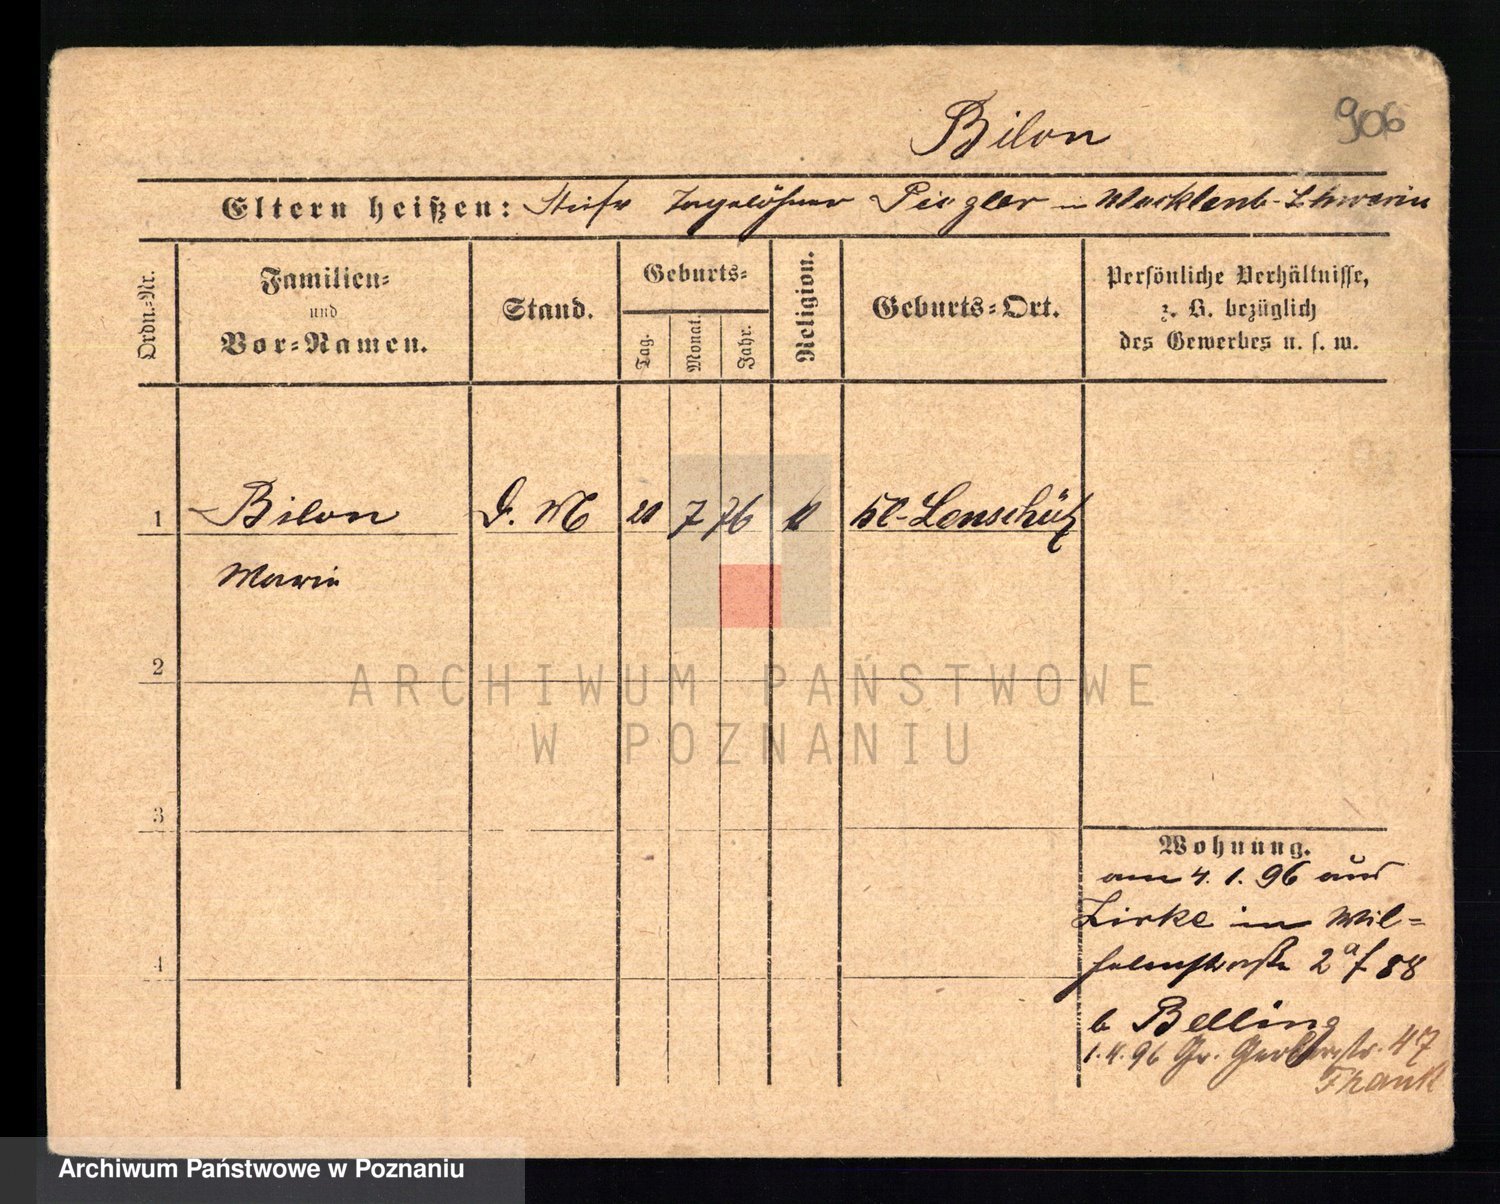 Bilon
906
Eltern heißen: Tagelöhner Piegler in Mecklenb-Schwerin
Ordn.-Nr.
Familien-
und
Vor-Namen.
Stand.
Geburts-
Tag.
Monat.
Jahr.
Religion.
Geburts-Ort.
Persönliche Verhältnisse,
z. B. bezüglich
des Gewerbes u. s. w.
1 Bilon D. M 7 76 Kl-Lenschütz
Marie
2
3
4
Wohnung.
am 4. 1. 96 aus
Zirke in Wil-
helmstraße 2a
b Belling
1.4.96 Gr. Gerberstr. 47
Frank
ARCHIWUM PAŃSTWOWE
W POZNANIU
Archiwum Państwowe w Poznaniu